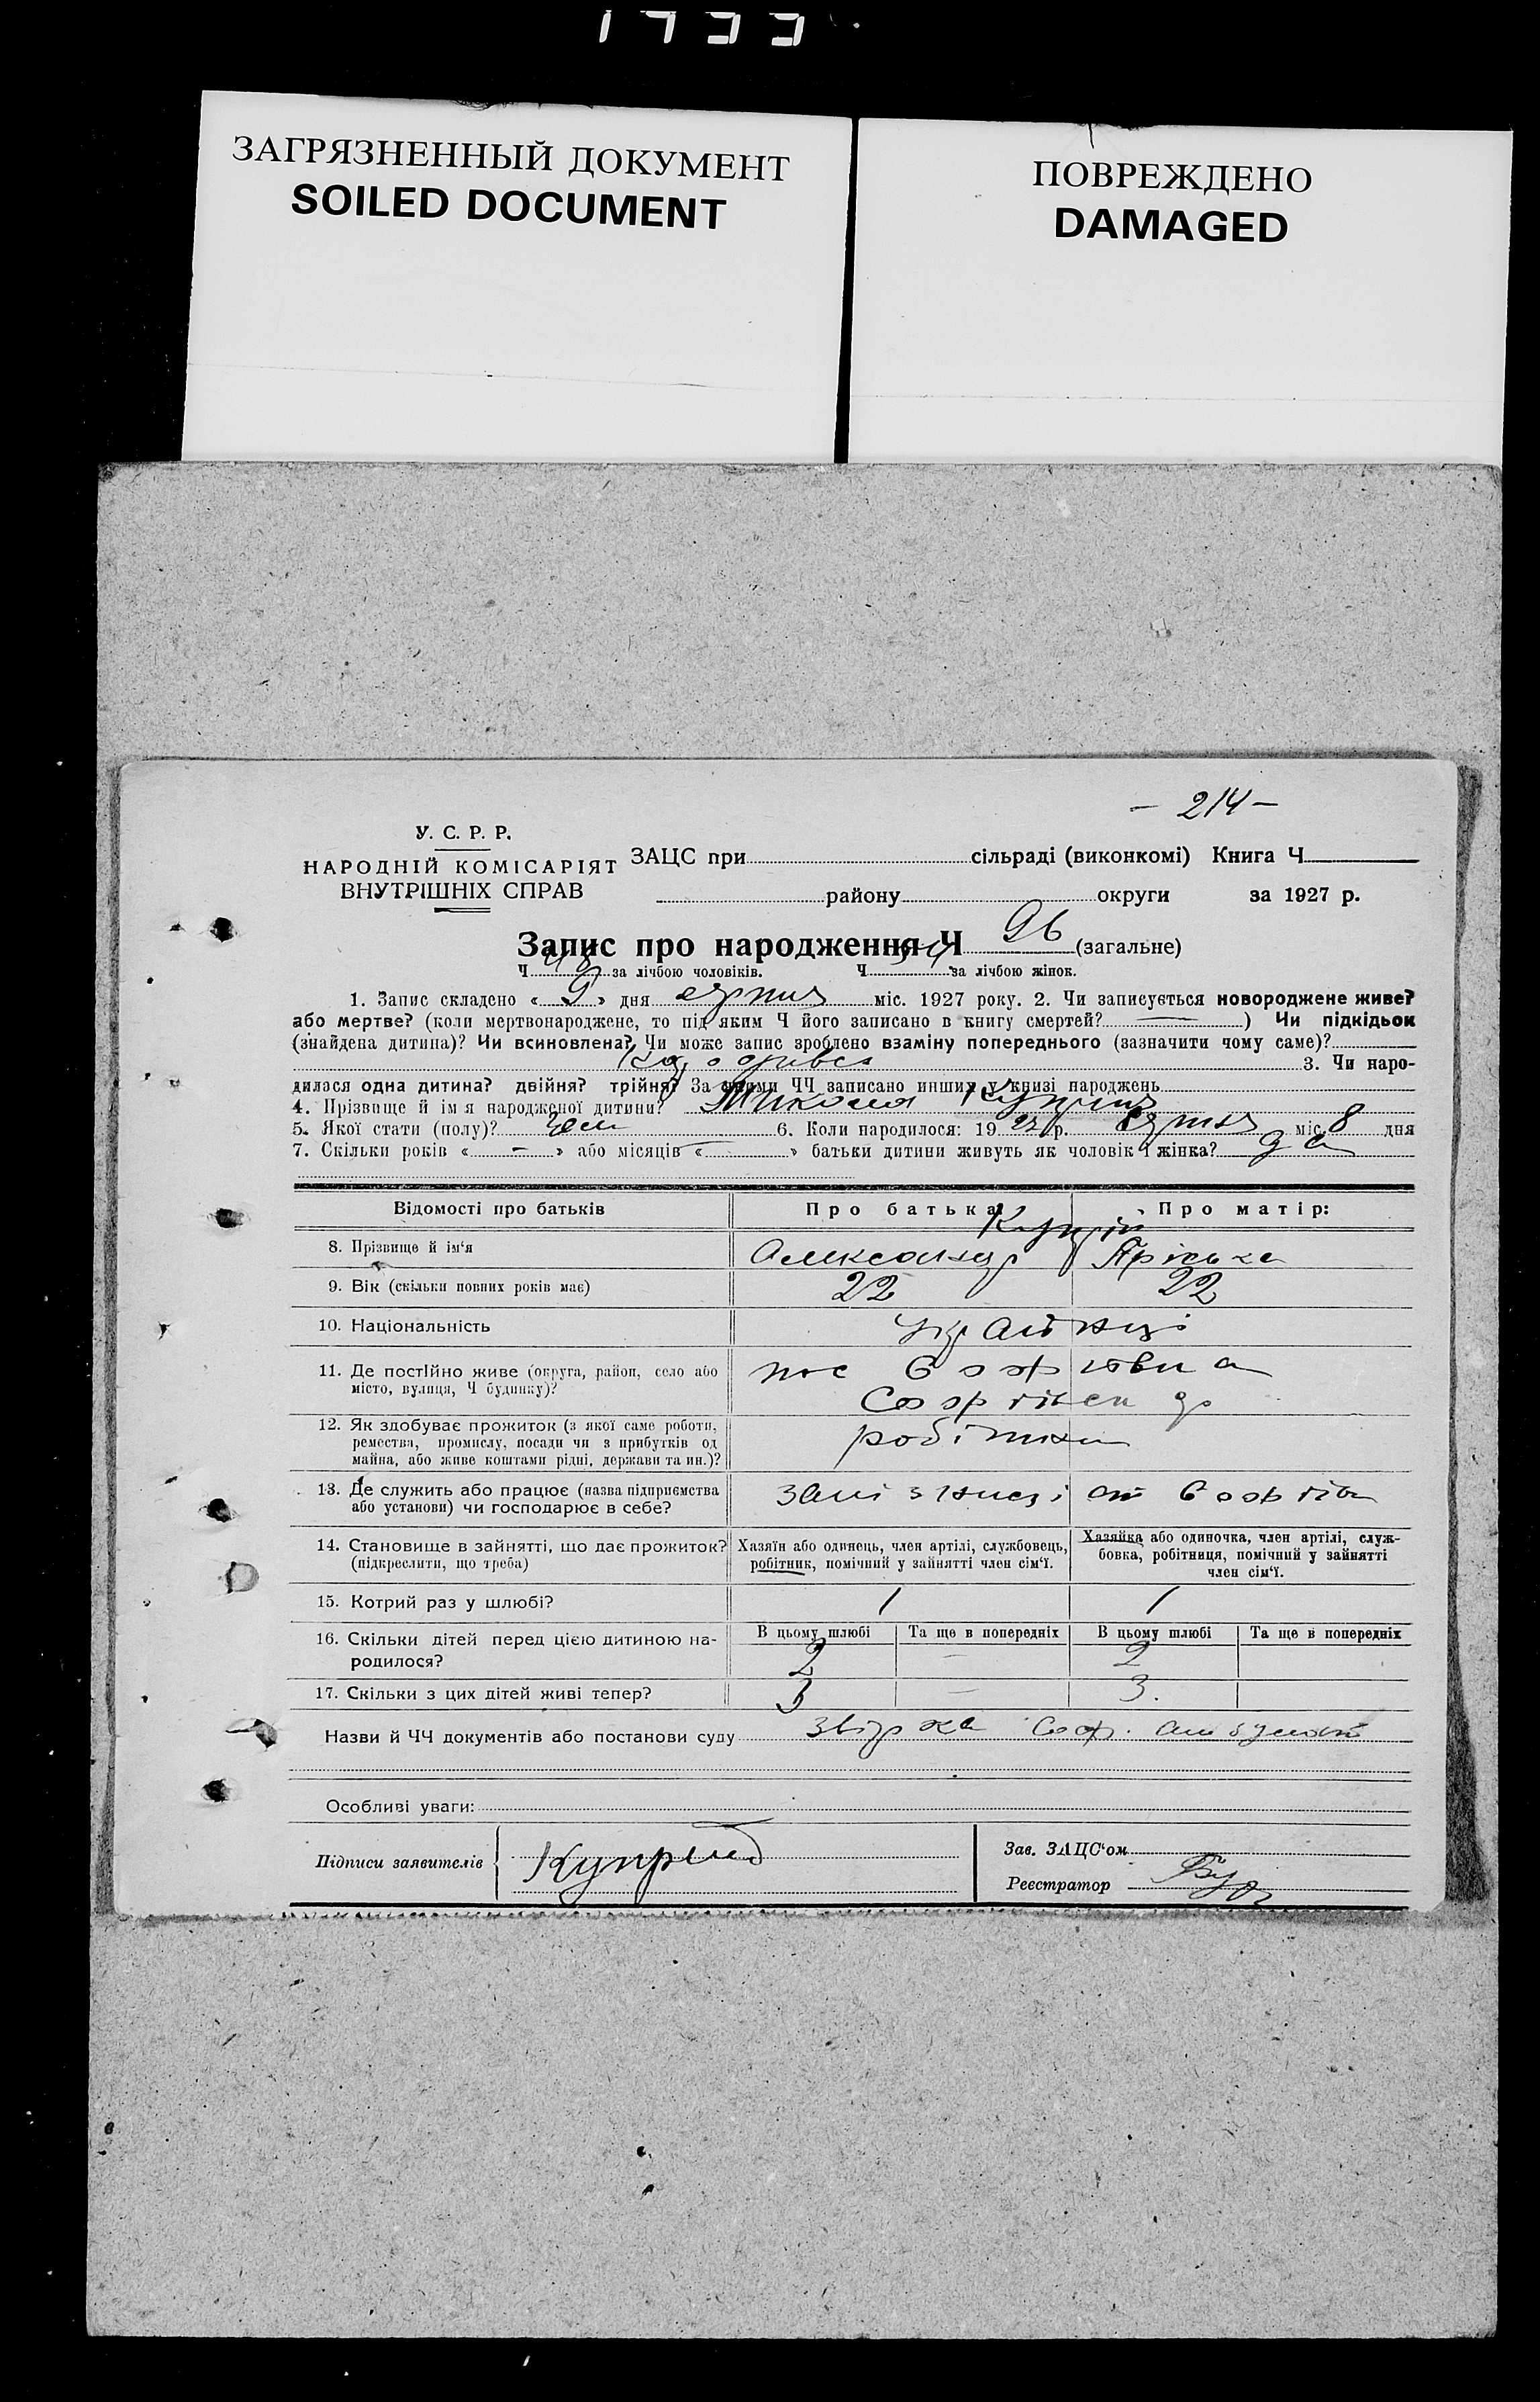 1733
ЗАГРЯЗНЕННЫЙ ДОКУМЕНТ
SOILED DOCUMENT
ПОВРЕЖДЕНО
DAMAGED
- 214 -
У. С. Р. Р.
НАРОДНІЙ КОМІСАРІЯТ
ВНУТРІШНІХ СПРАВ
ЗАЦС при сільраді (виконкомі) Книга Ч
району округи за 1927 р.
Запис про народження Ч 96 (загальне)
Ч за лічбою чоловіків. Ч за лічбою жінок.
1. Запис складено « 9 » дня серпня міс. 1927 року. 2. Чи записується новороджене живе?
або мертве? (коли мертвонароджене, то під яким Ч його записано в книгу смертей? — ) Чи підкідьок
(знайдена дитина)? Чи всиновлена? Чи може запис зроблено взаміну попереднього (зазначити чому саме)?
3. Чи наро-
дилася одна дитина? двійня? трійня? За якими ЧЧ записано инших у книзі народжень
4. Прізвище й імя народженої дитини? Микола
5. Якої стати (полу)? чол 6. Коли народилося: 19 27 р. серпня міс. 8 дня
7. Скільки років « - » або місяців « — » батьки дитини живуть як чоловік і жінка? да
Відомості про батьків Про батька Про матір:
8. Прізвище й ім‘я Александр Пріська
9. Вік (скільки повних років має) 22 22
10. Національність Українці
11. Де постійно живе (округа, район, село або
місто, вулиця, Ч будинку)?
12. Як здобуває прожиток (з якої саме роботи,
ремества, промислу, посади чи з прибутків од
майна, або живе коштами рідні, держави та ин.)?
робітник
13. Де служить або працює (назва підприємства
або установи) чи господарює в себе?
14. Становище в зайнятті, що дає прожиток?
(підкреслити, що треба)
Хазяїн або одинець, член артілі, службовець,
робітник, помічний у зайнятті член сім‘ї.
Хазяйка або одиночка, член артілі, служ-
бовка, робітниця, помічний у зайнятті
член сім‘ї.
15. Котрий раз у шлюбі? 1 1
16. Скільки дітей перед цією дитиною на-
родилося?
В цьому шлюбі Та ще в попередніх В цьому шлюбі Та ще в попередніх
2 — 2
17. Скільки з цих дітей живі тепер? 3 — 3.
Назви й ЧЧ документів або постанови суду
Особливі уваги:
Підписи заявителів
Зав. ЗАЦС‘ом
Реєстратор